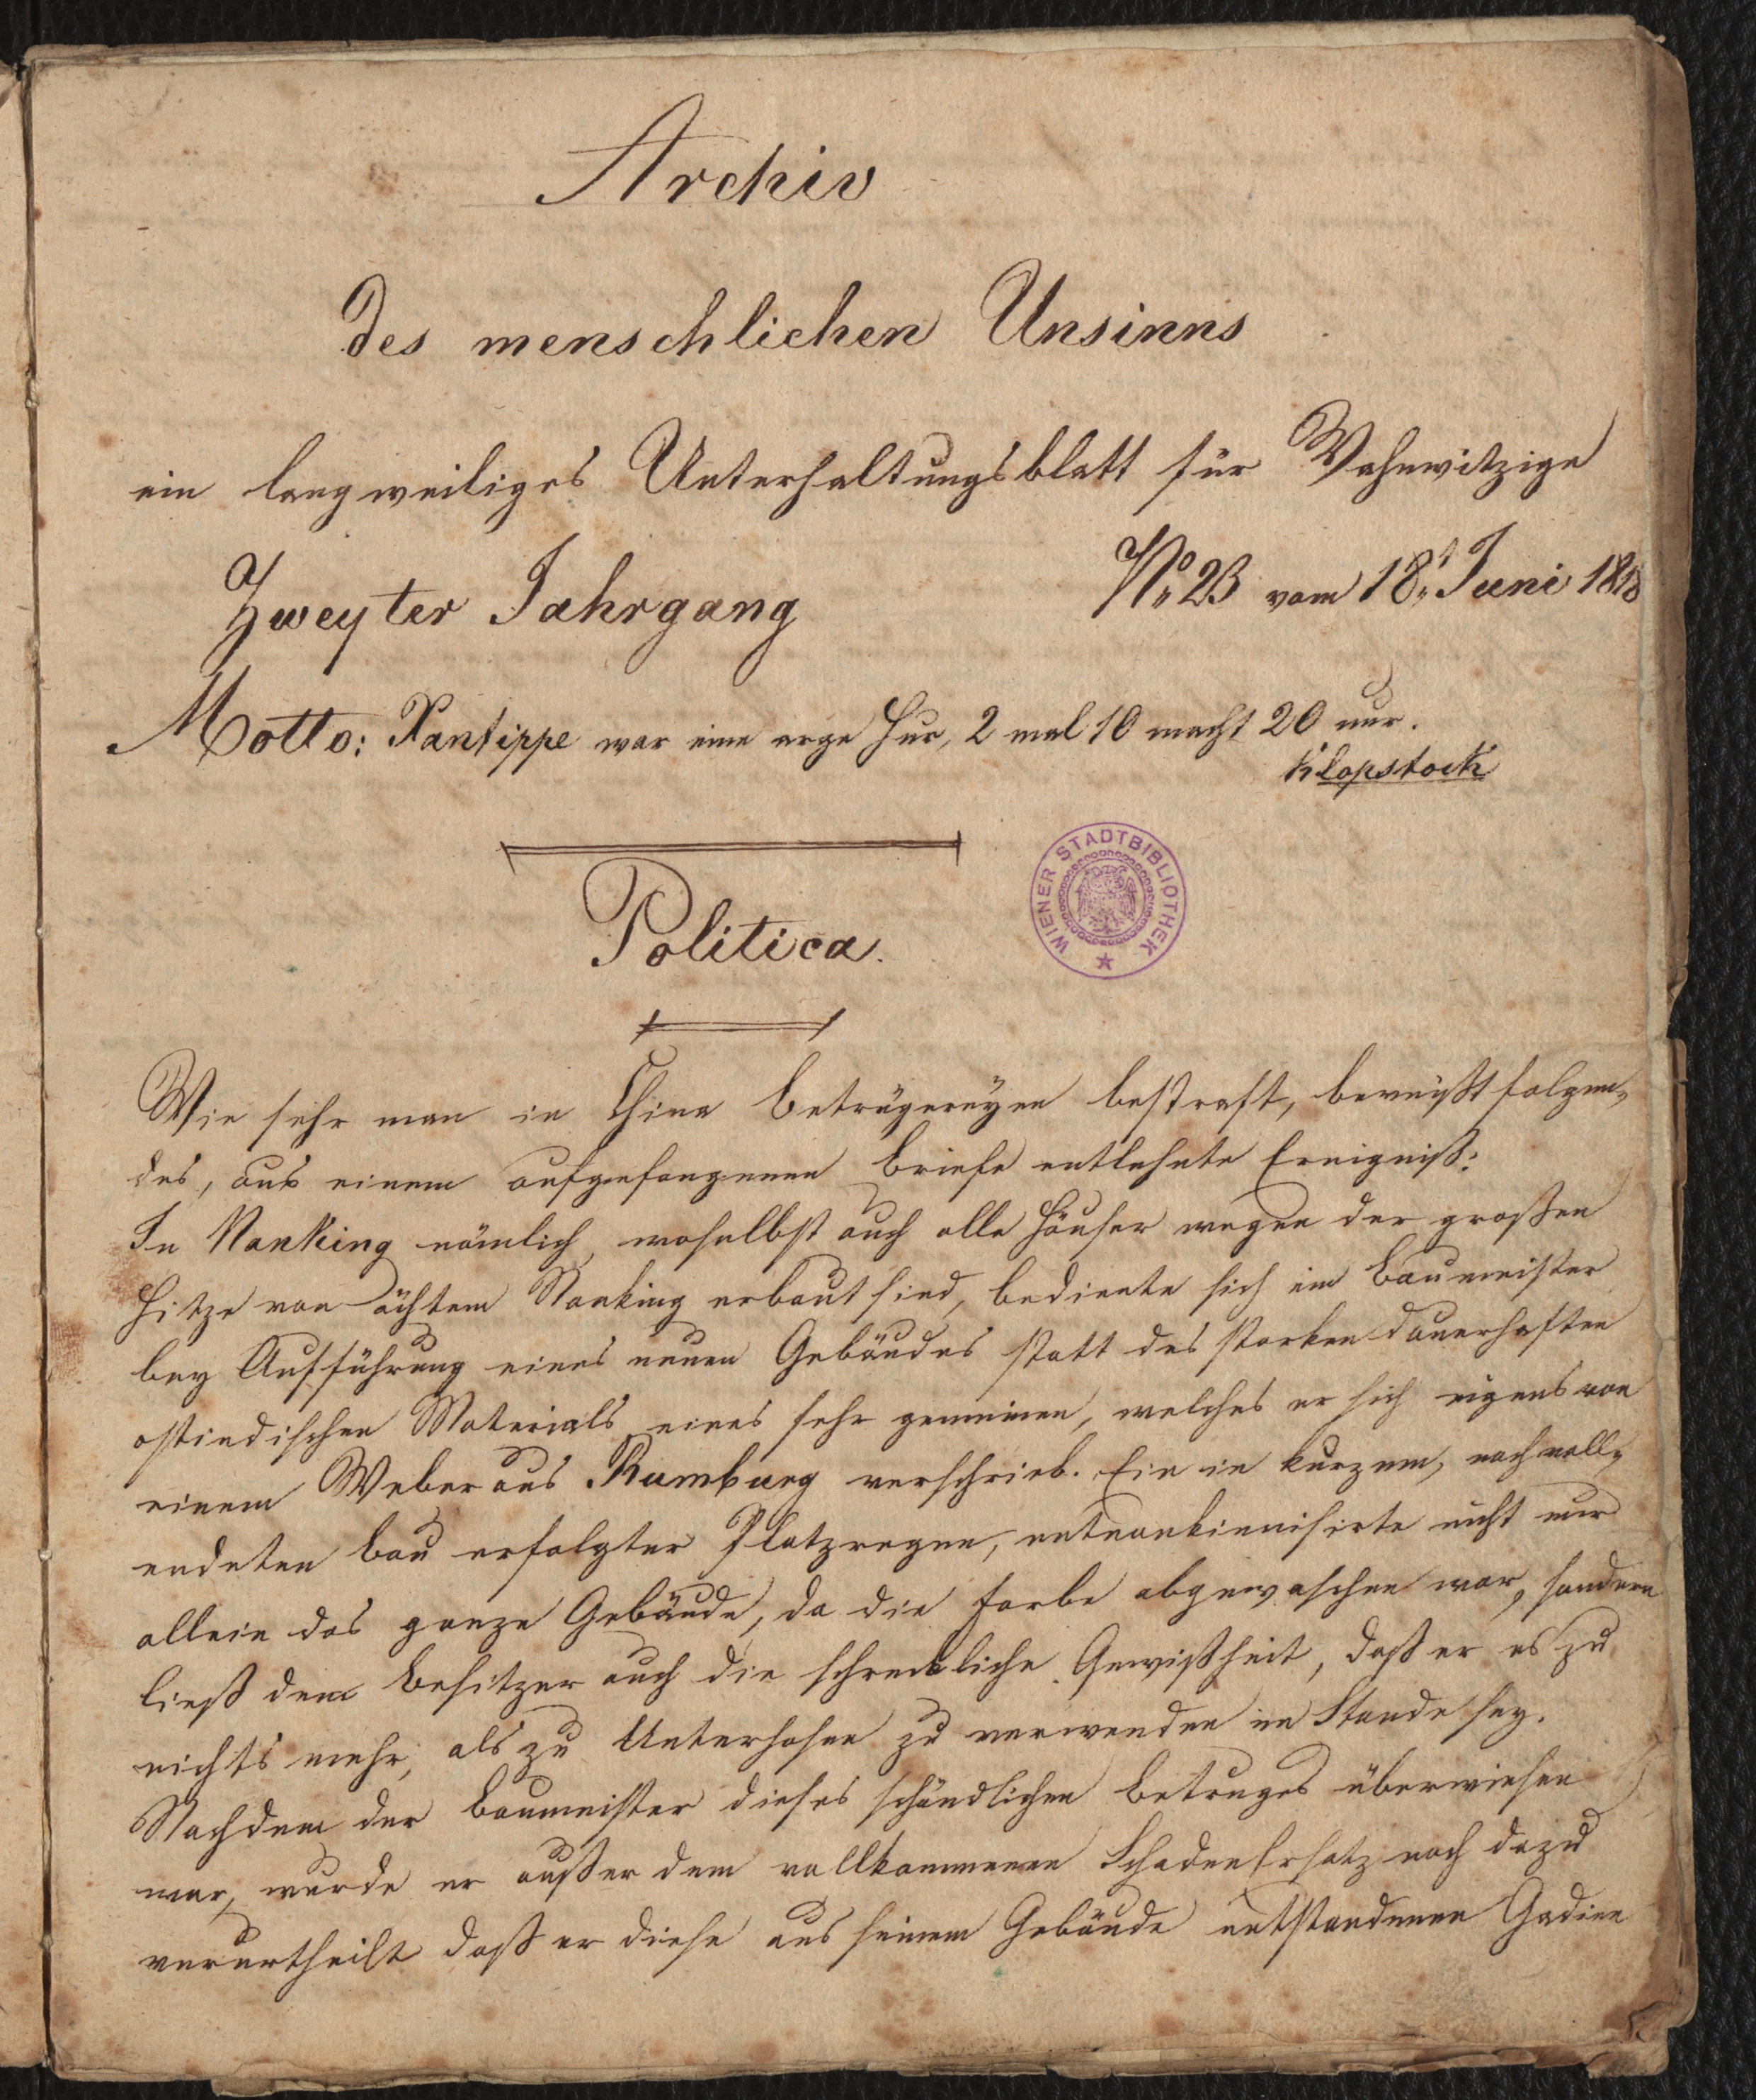 Archiv
des menschlichen Unsinns
ein langweiliges Unterhaltungsblatt für Wahnwitzige
Zweyter Jahrgang
No 23 vom 18t Juni 1818
Motto: Xantippe war eine arge Hur, 2 mal 10 macht 20 nur.
Klopstock
WIENER STADTBIBLIOTHEK
Politica.
Wie sehr man in China Betrügereyen bestraft, beweißt folgen-
des, aus einem aufgefangenen Briefe entlehnte Ereigniß:
In Nanking nämlich, woselbst auch alle Häuser wegen der großen
Hitze von ächtem Nanking erbaut sind, bediente sich ein Baumeister
bey Aufführung eines neuen Gebäudes statt des starken dauerhaften
ostindischen Materials eines sehr gemeinen, welches er sich eigens von
einem Weber aus Rumburg verschrieb. Ein in kurzem, nach voll-
endeten Bau erfolgter Platzregen, entnankinnisirte nicht nur
allein das ganze Gebäude, da die Farbe abgewaschen war, sondern
ließ dem Besitzer auch die schreckliche Gewißheit, daß er es zu
nichts mehr, als zu Unterhosen zu verwenden im Stande sey.
Nachdem der Baumeister dieses schändlichen Betruges überwiesen
war, wurde er außer dem vollkommenen SchadenErsatz noch dazu
verurtheilt daß er diese aus seinem Gebäude entstandenen Gadien